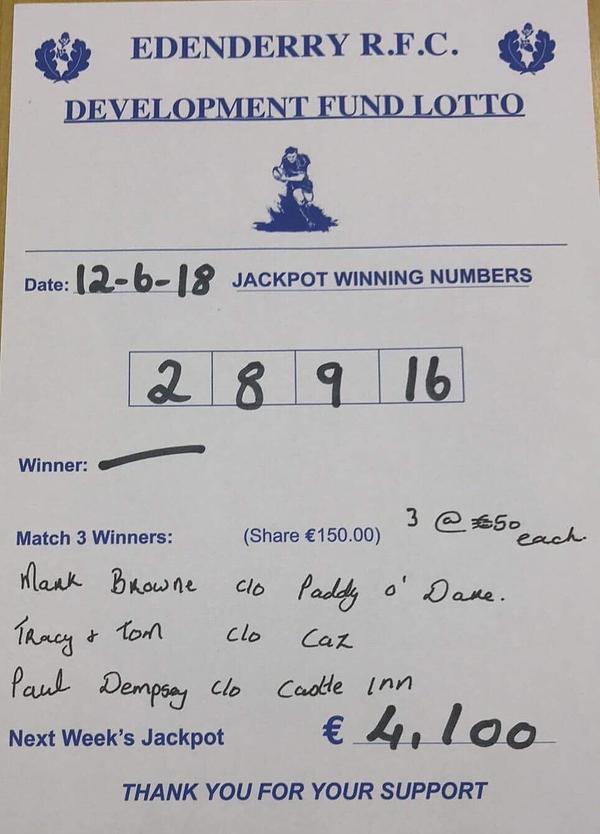 EDENDERRY R.F.C.
DEVELOPMENT FUND LOTTO
Date: 12-6-18 JACKPOT WINNING NUMBERS
2 8 9 16
Winner: —
Match 3 Winners: (Share €150.00) 3 @ €50 each.
Mark Browne c/o Paddy o' Dare.
Tracy & Tom c/o Caz
Paul Dempsey c/o Castle Inn
Next Week's Jackpot € 4,100
THANK YOU FOR YOUR SUPPORT